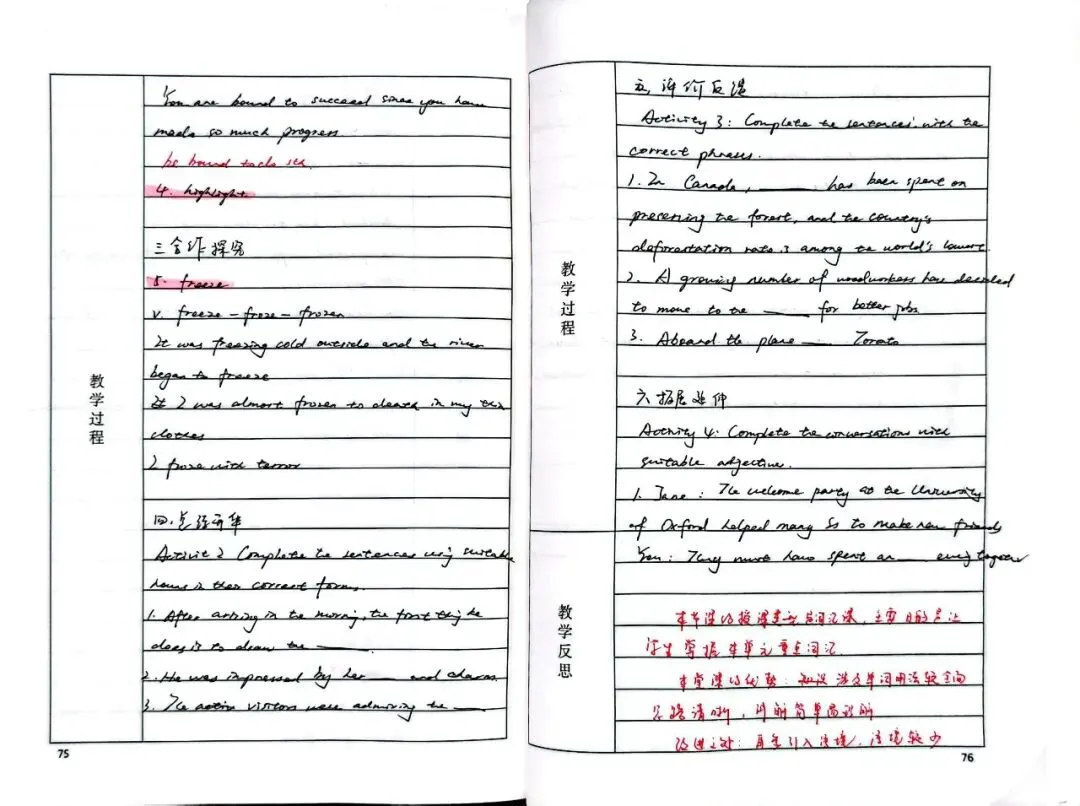 You are bound to succeed since you have
made so much progress
be bound to do sth.
4. highlight
三合作探究
5. freeze
v. freeze - froze - frozen
It was freezing cold outside and the river
began to freeze
I was almost frozen to death in my thin
clothes
I froze with terror
教学过程
四、点
Activity 2 Complete the sentences using suitable
nouns in their correct forms.
1. After arriving in the morning, the first thing he
does is to draw the ____
2. He was impressed by her ____ and charm
3. The active visitors were admiring the ____
75
五、评价反馈
Activity 3: Complete the sentences with the
correct phrases.
1. In Canada, ____ has been spent on
preserving the forest, and the country's
deforestation rate is among the world's lowest
2. A growing number of woodworkers have decided
to move to the ____ for better jobs
3. Aboard the plane ____ Toronto
教学过程
六拓展延伸
Activity 4: Complete the conversations with
suitable adjective.
1. Jane: The welcome party at the University
of Oxford helped many Ss to make new friends
You: They must have spent an ____ evening together
教学反思
本节课的授课 词汇课，主要目的是让
学生掌握本单元重点词汇
本堂课的优势：知识涉及单词用法较全面
思路清晰，讲解简单易理解
改进之处： 引入语境，语境较少
76